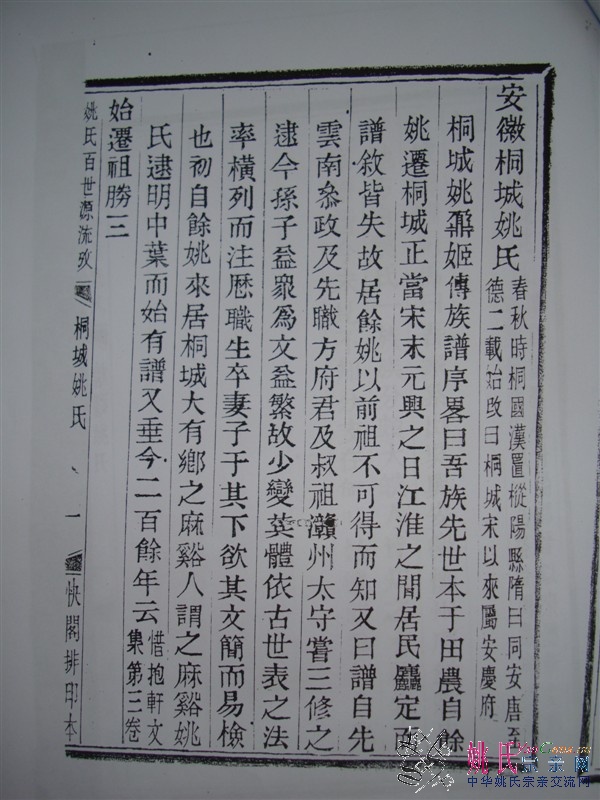 安徽桐城姚氏 春秋時桐國漢置樅陽縣隋曰同安唐至
德二載始改曰桐城宋以來屬安慶府
桐城姚鼐姬傳族譜序畧曰吾族先世本于田農自餘
姚遷桐城正當宋末元興之日江淮之閒居民麤定而
譜敘皆失故居餘姚以前祖不可得而知又曰譜自先
雲南叅政及先職方府君及叔祖灨州太守嘗三修之
逮今孫子益眾爲文益繁故少變其體依古世表之法
率橫列而注歷職生卒妻子于其下欲其文簡而易檢
也初自餘姚來居桐城大有鄉之麻谿人謂之麻谿姚
氏逮明中葉而始有譜又垂今二百餘年云 惜抱軒文
集第三卷
始遷祖勝三
姚氏百世源流攷 桐城姚氏 一 快閣排印本
姚氏宗亲网
中华姚氏宗亲交流网